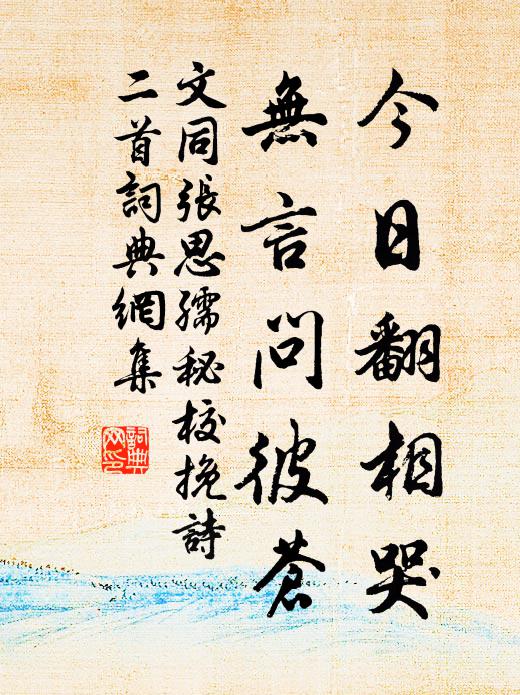 今日翻相哭
無言問彼蒼
文同張思孺秘校挽詩
二首詞典網集
詞典
网印